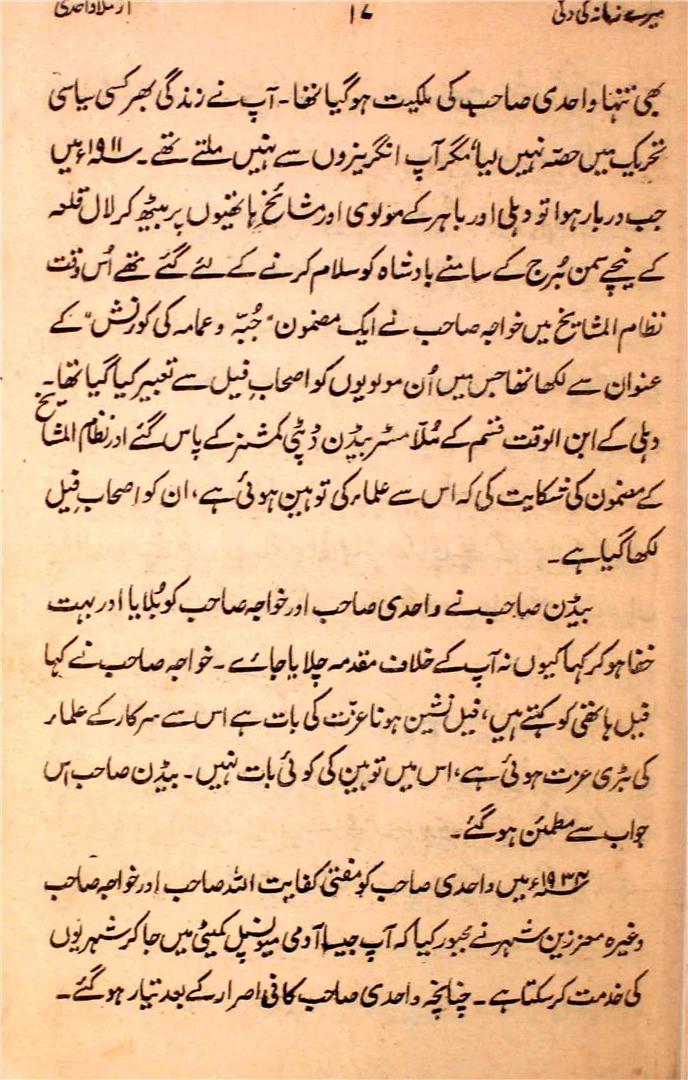 میرے زمانہ کی دلی ۱۷ از ملا واحدی
بھی تنہا واحدی صاحب کی ملکیت ہوگیا تھا۔ آپ نے زندگی بھر کسی سیاسی
تحریک میں حصہ نہیں لیا، مگر آپ انگریزوں سے نہیں ملتے تھے۔ ۱۹۱۱ء میں
جب دربار ہوا تو دہلی اور باہر کے مولوی اور مشائخ ہاتھیوں پر بیٹھ کر لال قلعہ
کے نیچے سمن بُرج کے سامنے بادشاہ کو سلام کرنے کے لئے گئے تھے اُس وقت
نظام المشایخ میں خواجہ صاحب نے ایک مضمون "جُبّہ و عمامہ کی کورنش" کے
عنوان سے لکھا تھا جس میں اُن مولویوں کو اصحابِ فیل سے تعبیر کیا گیا تھا۔
دہلی کے ابن الوقت قسم کے مُلّا مسٹر بیڈن ڈپٹی کمشنر کے پاس گئے اور نظام المشایخ
کے مضمون کی شکایت کی کہ اس سے علماء کی توہین ہوئی ہے، ان کو اصحابِ فیل
لکھا گیا ہے۔
بیڈن صاحب نے واحدی صاحب اور خواجہ صاحب کو بُلایا اور بہت
خفا ہوکر کہا کیوں نہ آپ کے خلاف مقدمہ چلایا جائے۔ خواجہ صاحب نے کہا
فیل ہاتھی کو کہتے ہیں، فیل نشین ہونا عزّت کی بات ہے اس سے سرکار کے علماء
کی بڑی عزت ہوئی ہے، اس میں توہین کی کوئی بات نہیں۔ بیڈن صاحب اس
جواب سے مطمئن ہوگئے۔
۱۹۳۴ء میں واحدی صاحب کو مفتی کفایت اللہ صاحب اور خواجہ صاحب
وغیرہ معززین شہر نے مجبور کیا کہ آپ جیسا آدمی میونسپل کمیٹی میں جاکر شہریوں
کی خدمت کرسکتا ہے۔ چنانچہ واحدی صاحب کافی اصرار کے بعد تیار ہوگئے۔